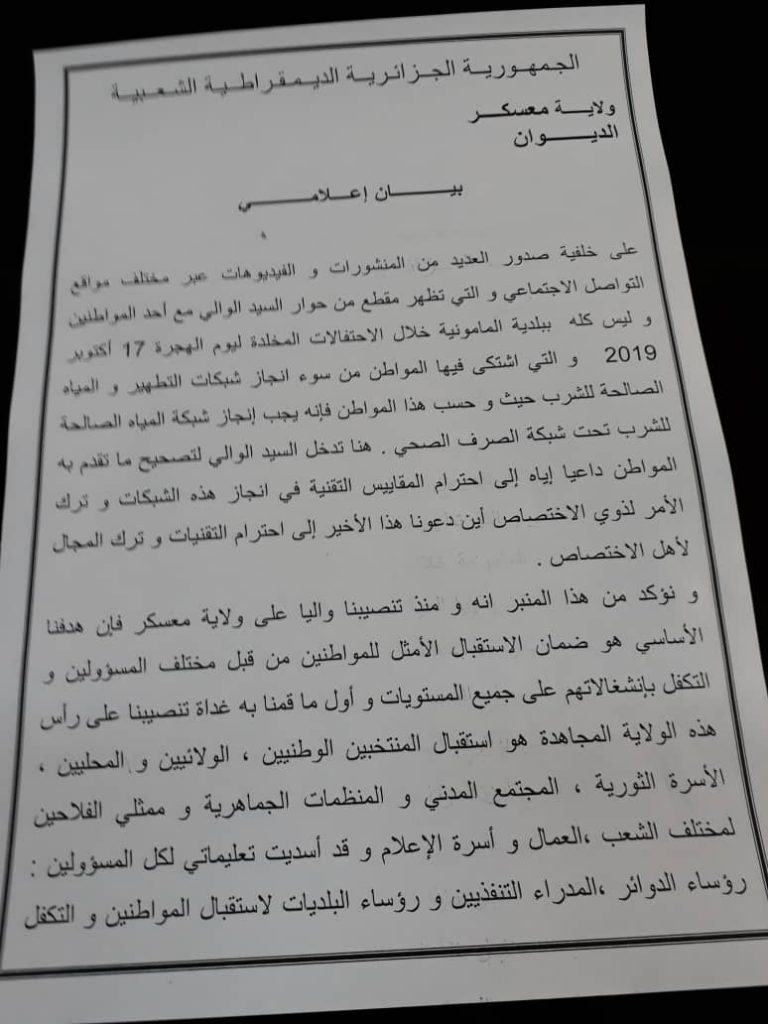 الجمهورية الجزائرية الديمقراطية الشعبية
ولاية معسكر
الديوان
بيان إعلامي
على خلفية صدور العديد من المنشورات و الفيديوهات عبر مختلف مواقع
التواصل الاجتماعي و التي تظهر مقطع من حوار السيد الوالي مع أحد المواطنين
و ليس كله ببلدية المامونية خلال الاحتفالات المخلدة ليوم الهجرة 17 أكتوبر
2019 و التي اشتكى فيها المواطن من سوء انجاز شبكات التطهير و المياه
الصالحة للشرب حيث و حسب هذا المواطن فإنه يجب إنجاز شبكة المياه الصالحة
للشرب تحت شبكة الصرف الصحي . هنا تدخل السيد الوالي لتصحيح ما تقدم به
المواطن داعيا إياه إلى احترام المقاييس التقنية في انجاز هذه الشبكات و ترك
الأمر لذوي الاختصاص أين دعونا هذا الأخير إلى احترام التقنيات و ترك المجال
لأهل الاختصاص .
و نؤكد من هذا المنبر انه و منذ تنصيبنا واليا على ولاية معسكر فإن هدفنا
الأساسي هو ضمان الاستقبال الأمثل للمواطنين من قبل مختلف المسؤولين و
التكفل بإنشغالاتهم على جميع المستويات و أول ما قمنا به غداة تنصيبنا على رأس
هذه الولاية المجاهدة هو استقبال المنتخبين الوطنيين ، الولائيين و المحليين ،
الأسرة الثورية ، المجتمع المدني و المنظمات الجماهرية و ممثلي الفلاحين
لمختلف الشعب ،العمال و أسرة الإعلام و قد أسديت تعليماتي لكل المسؤولين :
رؤساء الدوائر ،المدراء التنفذيين و رؤساء البلديات لاستقبال المواطنين و التكفل